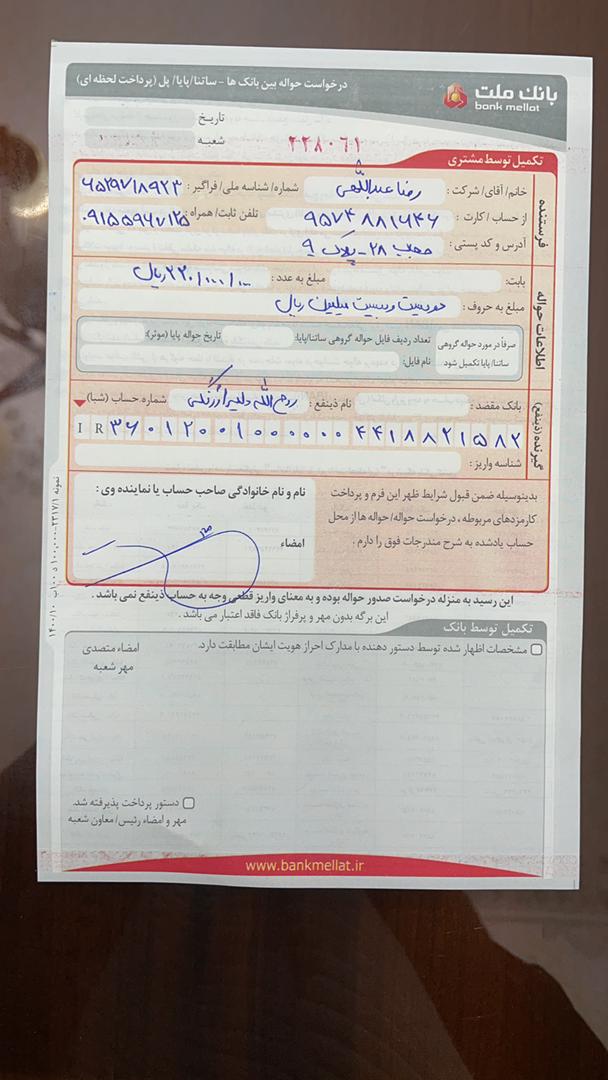 بانک ملت
bank mellat
درخواست حواله بین بانک ها - ساتنا/پایا/ پل (پرداخت لحظه ای)
تاریخ
شعبه
۲۲۸۰۶۱
تکمیل توسط مشتری
فرستنده
خانم/آقای/شرکت : رضا عبداللهی شماره/شناسه ملی/فراگیر :
از حساب /کارت : ۹۵۷۴۸۸۱۶۴۶ تلفن ثابت/همراه : ۰۹۱۵۵۹۶۷۱۲۵
آدرس و کد پستی : ۲۸ - پلاک ۹
اطلاعات حواله
بابت: مبلغ به عدد : ۲۲۰/۰۰۰/۰۰۰ ریال
مبلغ به حروف : دویست و بیست میلیون ریال
صرفاً در مورد حواله گروهی ساتنا/پایا تکمیل شود.
تعداد ردیف فایل حواله گروهی ساتنا/پایا: تاریخ حواله پایا (موثر):
نام فایل:
گیرنده (ذینفع)
بانک مقصد : نام ذینفع : روح الله شماره حساب (شبا) :
I R ۳۶ ۰۱۲۰ ۰۱۰۰ ۰۰۰۰ ۴۴۱۸ ۸۲۱۵ ۸۲
شناسه واریز :
بدینوسیله ضمن قبول شرایط ظهر این فرم و پرداخت
کارمزدهای مربوطه ، درخواست حواله/ حواله ها از محل
حساب یادشده به شرح مندرجات فوق را دارم .
نام و نام خانوادگی صاحب حساب یا نماینده وی :
امضاء
این رسید به منزله درخواست صدور حواله بوده و به معنای واریز قطعی وجه به حساب ذینفع نمی باشد .
این برگه بدون مهر و پرفراژ بانک فاقد اعتبار می باشد .
تکمیل توسط بانک
مشخصات اظهار شده توسط دستور دهنده با مدارک احراز هویت ایشان مطابقت دارد.
امضاء متصدی
مهر شعبه
دستور پرداخت پذیرفته شد.
مهر و امضاء رئیس/ معاون شعبه
www.bankmellat.ir